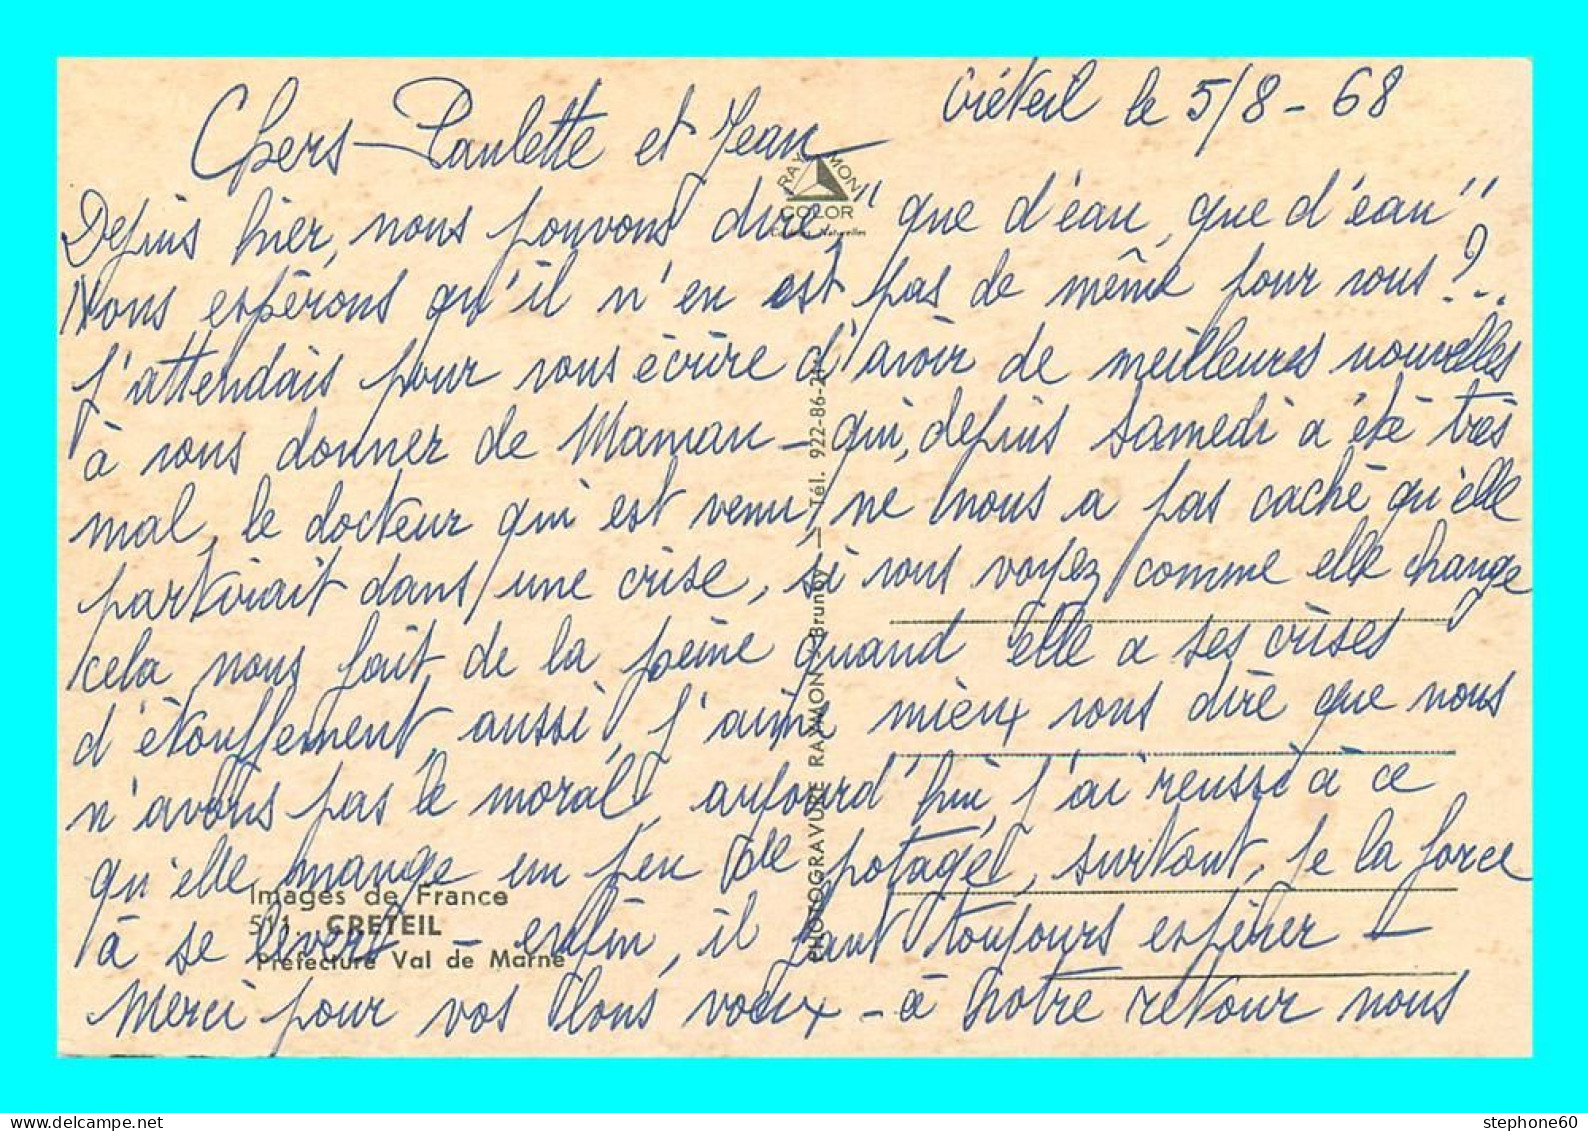 Créteil le 5/8 - 68
Chers Paulette et Jean
RAYMON
COLOR
Couleurs Naturelles
Depuis hier, nous pouvons dire "que d'eau, que d'eau"
Nous espérons qu'il n'en est pas de même pour vous?..
J'attendais pour vous écrire d'avoir de meilleures nouvelles
à vous donner de Maman - qui, depuis samedi a été très
mal, le docteur qui est venu, ne nous a pas caché qu'elle
partirait dans une crise, si vous voyez comme elle change
cela nous fait de la peine quand elle a ses crises
d'étouffement, aussi, j'aime mieux vous dire que nous
n'avons pas le moral, aujourd'hui, j'ai reussi à ce
qu'elle mange un peu de potage, surtout, je la force
à se lever - enfin, il faut toujours espérer -
Merci pour vos bons voeux - à notre retour nous
Images de France
511. CRETEIL
Préfecture Val de Marne
PHOTOGRAVURE RAYMON - Brunoy - Tél. 922-86-21
stephone60